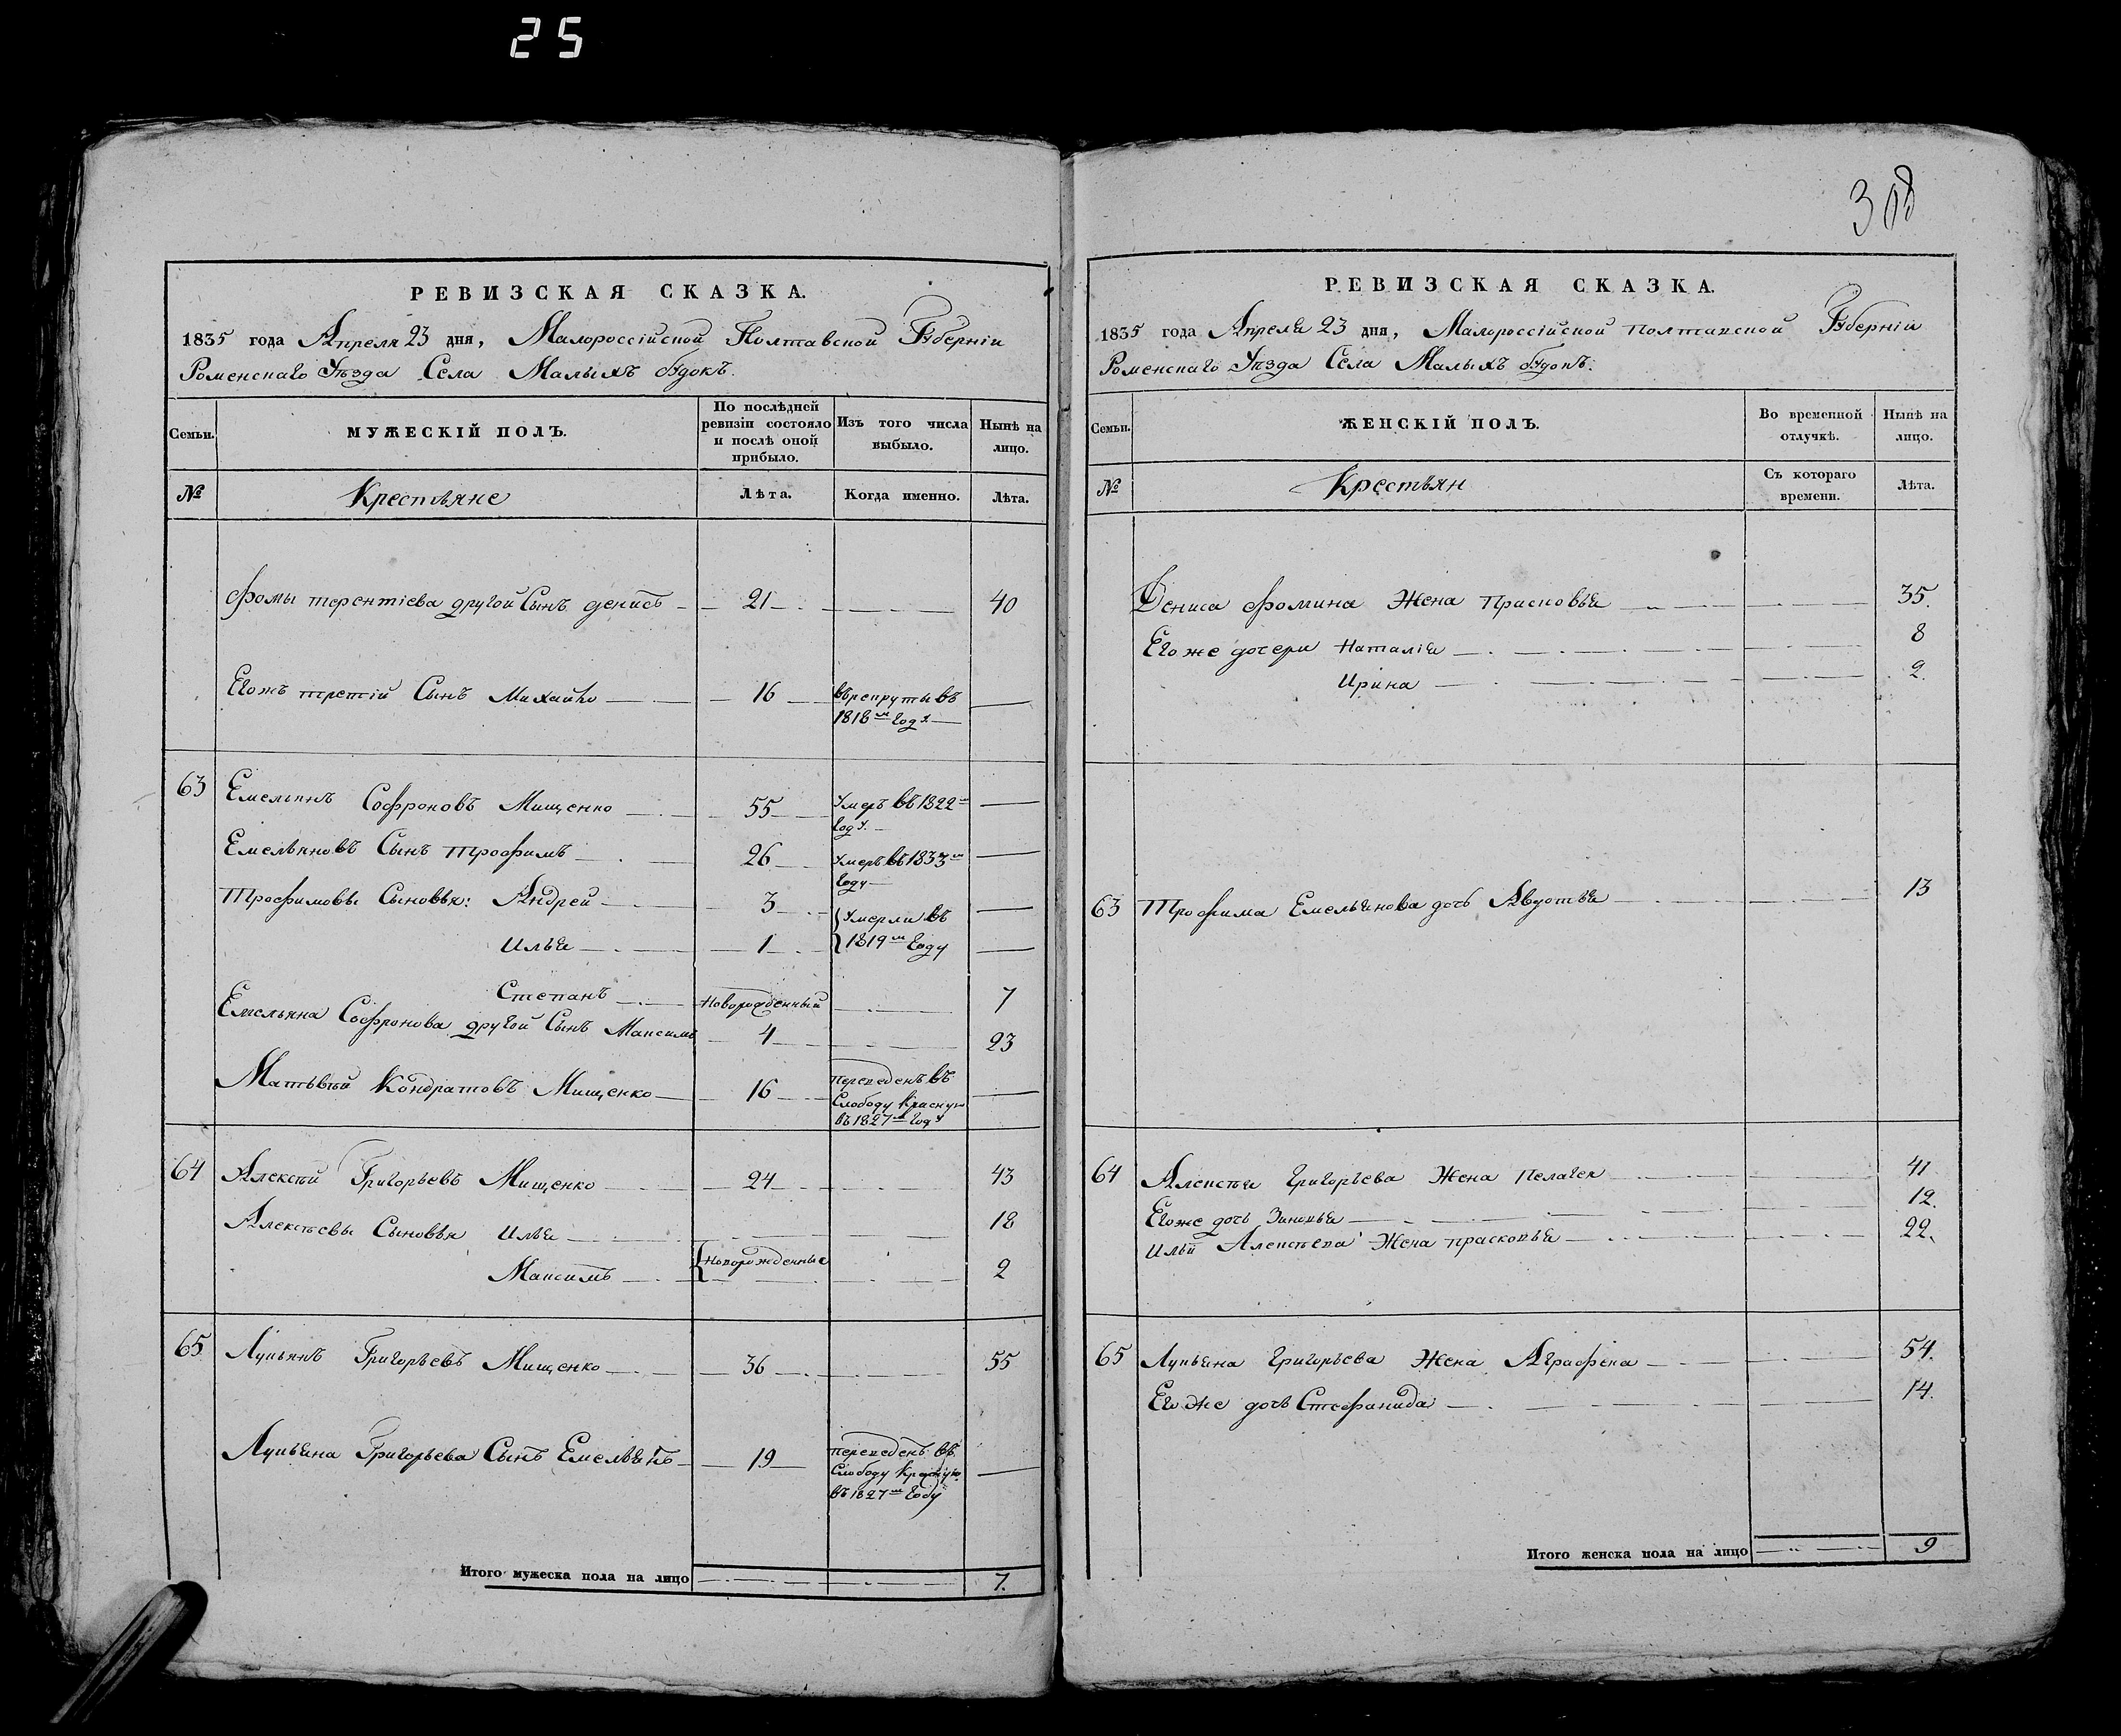 25
308
РЕВИЗСКАЯ СКАЗКА.
1835 года Апреля 23 дня, Малороссійской Полтавской Губерніи
Роменскаго Уѣзда Села Малыхъ Будокъ.
Семьи.
МУЖЕСКІЙ ПОЛЪ.
По послѣдней ревизіи состояло и послѣ оной прибыло.
Изъ того числа выбыло.
Нынѣ на лицо.
№
Крестьяне
Лѣта.
Когда именно.
Лѣта.
Фомы терентіева другой Сынъ денисъ 21 40
Егожъ третій Сынъ Михайло 16 въ рекруты въ
1818м году
63 Емельянъ Софроновъ Мищенко 55 Умеръ въ 1822м
году
Емельяновъ Сынъ Трофимъ 26 Умеръ въ 1833м
году
Трофимовы Сыновья: Андрей 3 Умерли въ
Илья 1 1819м году
Степанъ Новорожденный 7
Емельяна Софронова другой Сынъ Максимъ 4 23
Матьвѣй Кондратовъ Мищенко 16 Переведенъ въ
Слободу Красную
въ 1827м году
64 Алексѣй Григорьевъ Мищенко 24 43
Алексѣевы Сыновья Илья 18
Новорожденные
Максимъ 2
65 Лукьянъ Григорьевъ Мищенко 36 55
Лукьяна Григорьева Сынъ Емельянъ 19 переведенъ въ
Слободу Красную
въ 1827м году
Итого мужеска пола на лицо 7.
РЕВИЗСКАЯ СКАЗКА.
1835 года Апреля 23 дня, Малороссійской Полтавской Губерніи
Роменскаго Уѣзда Села Малыхъ Будокъ.
Семьи.
ЖЕНСКІЙ ПОЛЪ.
Во временной отлучкѣ.
Нынѣ на лицо.
№
Крестьян
Съ котораго времени.
Лѣта.
Дениса Фомина Жена Прасковья 35.
Его же дочери Наталія 8
Ирина 2.
63 Трофима Емельянова дочь Авдотья 13
64 Алексѣя Григорьева Жена Пелагея 41
Егоже дочь Зиновья 12.
Ильи Алексѣева Жена прасковья 22.
65 Лукьяна Григорьева Жена Аграфена 54.
Егоже дочь Стефанида 14.
Итого женска пола на лицо 9